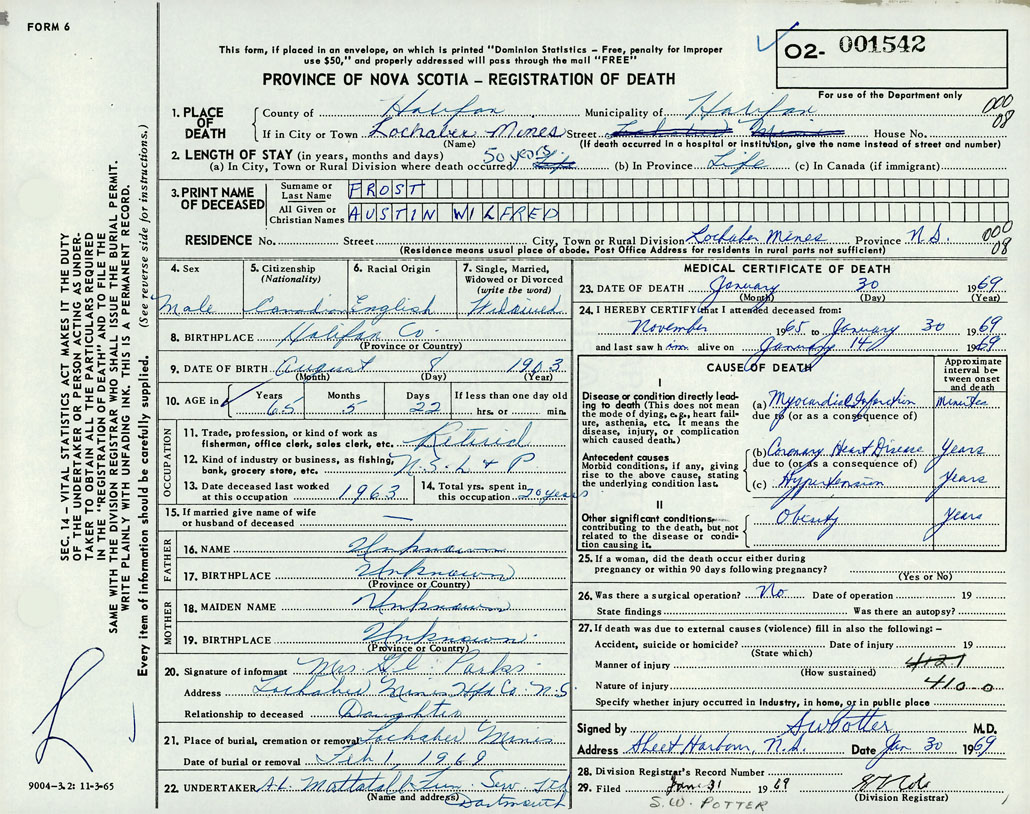 FORM 6
This form, if placed in an envelope, on which is printed "Dominion Statistics – Free, penalty for improper
use $50," and properly addressed will pass through the mail "FREE"
PROVINCE OF NOVA SCOTIA – REGISTRATION OF DEATH
O2- 001542
For use of the Department only
000
08
1. PLACE OF DEATH
County of Halifax Municipality of Halifax
If in City or Town Lochaber Mines Street House No.
(Name) (If death occurred in a hospital or institution, give the name instead of street and number)
2. LENGTH OF STAY (in years, months and days)
(a) In City, Town or Rural Division where death occurred 50 years Life (b) In Province Life (c) In Canada (if immigrant)
3. PRINT NAME OF DECEASED
Surname or Last Name FROST
All Given or Christian Names AUSTIN WILFRED
RESIDENCE No. Street City, Town or Rural Division Lochaber Mines Province N.S.
(Residence means usual place of abode. Post Office Address for residents in rural parts not sufficient)
000
08
4. Sex
Male
5. Citizenship
(Nationality)
Canadian
6. Racial Origin
English
7. Single, Married,
Widowed or Divorced
(write the word)
Widowed
8. BIRTHPLACE Halifax Co.
(Province or Country)
9. DATE OF BIRTH August 8 1903
(Month) (Day) (Year)
10. AGE in
Years Months Days If less than one day old
65 5 22 hrs. or min.
OCCUPATION
11. Trade, profession, or kind of work as
fisherman, office clerk, sales clerk, etc. Retired
12. Kind of industry or business, as fishing,
bank, grocery store, etc. N.S. L & P
13. Date deceased last worked
at this occupation 1963
14. Total yrs. spent in
this occupation 20 years
15. If married give name of wife
or husband of deceased —
FATHER
16. NAME Unknown
17. BIRTHPLACE Unknown
(Province or Country)
MOTHER
18. MAIDEN NAME Unknown
19. BIRTHPLACE Unknown
(Province or Country)
20. Signature of informant Mrs. Parks
Address Lochaber Mines Hfx Co. N.S
Relationship to deceased Daughter
21. Place of burial, cremation or removal Lochaber Mines
Date of burial or removal Feb 1, 1969
22. UNDERTAKER A.L. Mattatall &
(Name and address) Dartmouth
MEDICAL CERTIFICATE OF DEATH
23. DATE OF DEATH January 30 1969
(Month) (Day) (Year)
24. I HEREBY CERTIFY that I attended deceased from:
November 1965 to January 30 1969
and last saw him alive on January 14 1969
CAUSE OF DEATH
Approximate
interval be-
tween onset
and death
I
Disease or condition directly lead-
ing to death (This does not
mean the mode of dying, e.g., heart fail-
ure, asthenia, etc. It means the
disease, injury, or complication
which caused death.)
(a) Myocardial Infarction minutes
due to (or as a consequence of)
Antecedent causes
Morbid conditions, if any, giving
rise to the above cause, stating
the underlying condition last.
(b) Coronary Heart Disease Years
due to (or as a consequence of)
(c) Hypertension Years
II
Other significant conditions-
contributing to the death, but not
related to the disease or condi-
tion causing it.
Obesity Years
25. If a woman, did the death occur either during
pregnancy or within 90 days following pregnancy?
(Yes or No)
26. Was there a surgical operation? No Date of operation 19
State findings Was there an autopsy?
27. If death was due to external causes (violence) fill in also the following: –
Accident, suicide or homicide? Date of injury 19
(State which)
Manner of injury 4121
(How sustained)
Nature of injury 410.0
Specify whether injury occurred in industry, in home, or in public place
Signed by SW Potter M.D.
Address Sheet Harbour, N.S. Date Jan 30 1969
28. Division Registrar's Record Number
29. Filed Jan 31 1969
(Division Registrar)
S.W. POTTER
SEC. 14 – VITAL STATISTICS ACT MAKES IT THE DUTY
OF THE UNDERTAKER OR PERSON ACTING AS UNDER-
TAKER TO OBTAIN ALL THE PARTICULARS REQUIRED
IN THE "REGISTRATION OF DEATH" AND TO FILE THE
SAME WITH THE DIVISION REGISTRAR WHO SHALL ISSUE THE BURIAL PERMIT.
WRITE PLAINLY WITH UNFADING INK. THIS IS A PERMANENT RECORD.
Every item of information should be carefully supplied. (See reverse side for instructions.)
9004-3.2: 11-3-65
1